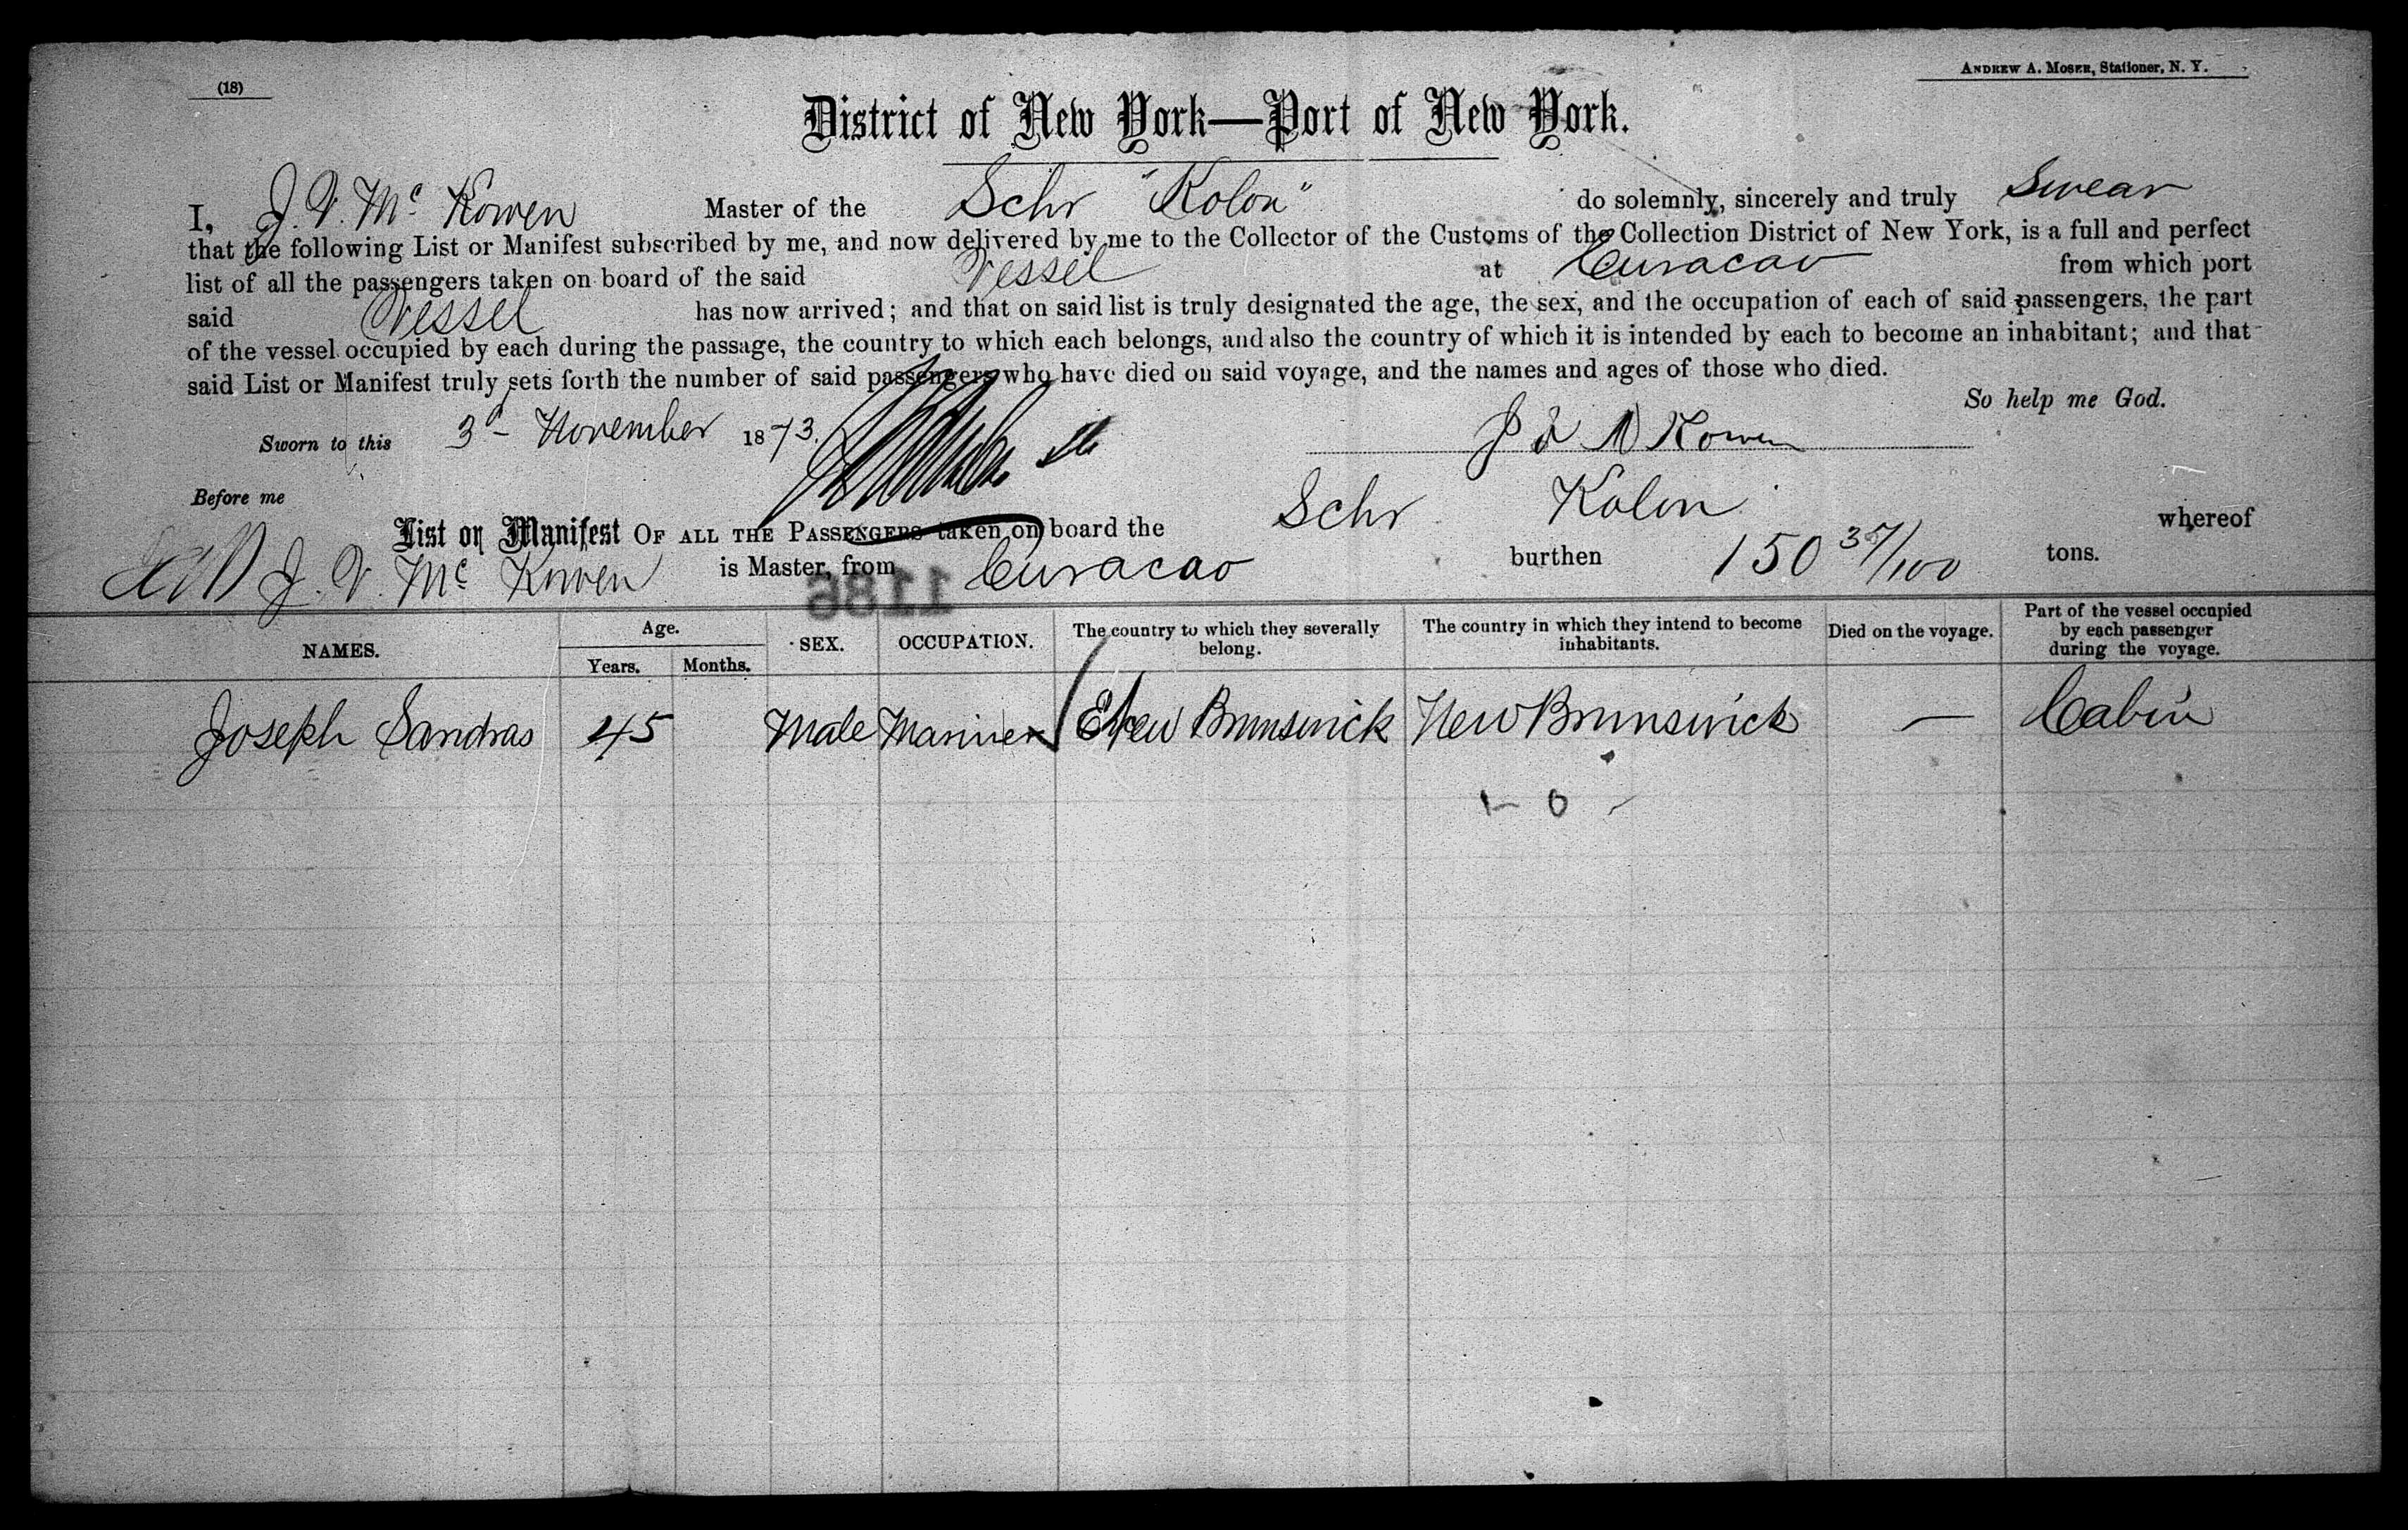 (18)
ANDREW A. MOSER, Stationer, N. Y.
District of New York—Port of New York.
I, J. V. Mc Kowen Master of the Schr "Kolon" do solemnly, sincerely and truly Swear
that the following List or Manifest subscribed by me, and now delivered by me to the Collector of the Customs of the Collection District of New York, is a full and perfect
list of all the passengers taken on board of the said Vessel at Curacao from which port
said Vessel has now arrived; and that on said list is truly designated the age, the sex, and the occupation of each of said passengers, the part
of the vessel occupied by each during the passage, the country to which each belongs, and also the country of which it is intended by each to become an inhabitant; and that
said List or Manifest truly sets forth the number of said passengers who have died on said voyage, and the names and ages of those who died.
So help me God.
Sworn to this 3d November 1873. J V Mc Kowen
Before me
List or Manifest OF ALL THE PASSENGERS taken on board the Schr Kolon whereof
J. V. Mc Kowen is Master, from Curacao burthen 150 37/100 tons.
1186
NAMES. Age. Years. Months. SEX. OCCUPATION. The country to which they severally belong. The country in which they intend to become inhabitants. Died on the voyage. Part of the vessel occupied by each passenger during the voyage.
Joseph Sandras 45 Male Mariner New Brunswick New Brunswick — Cabin
1 - 0 -